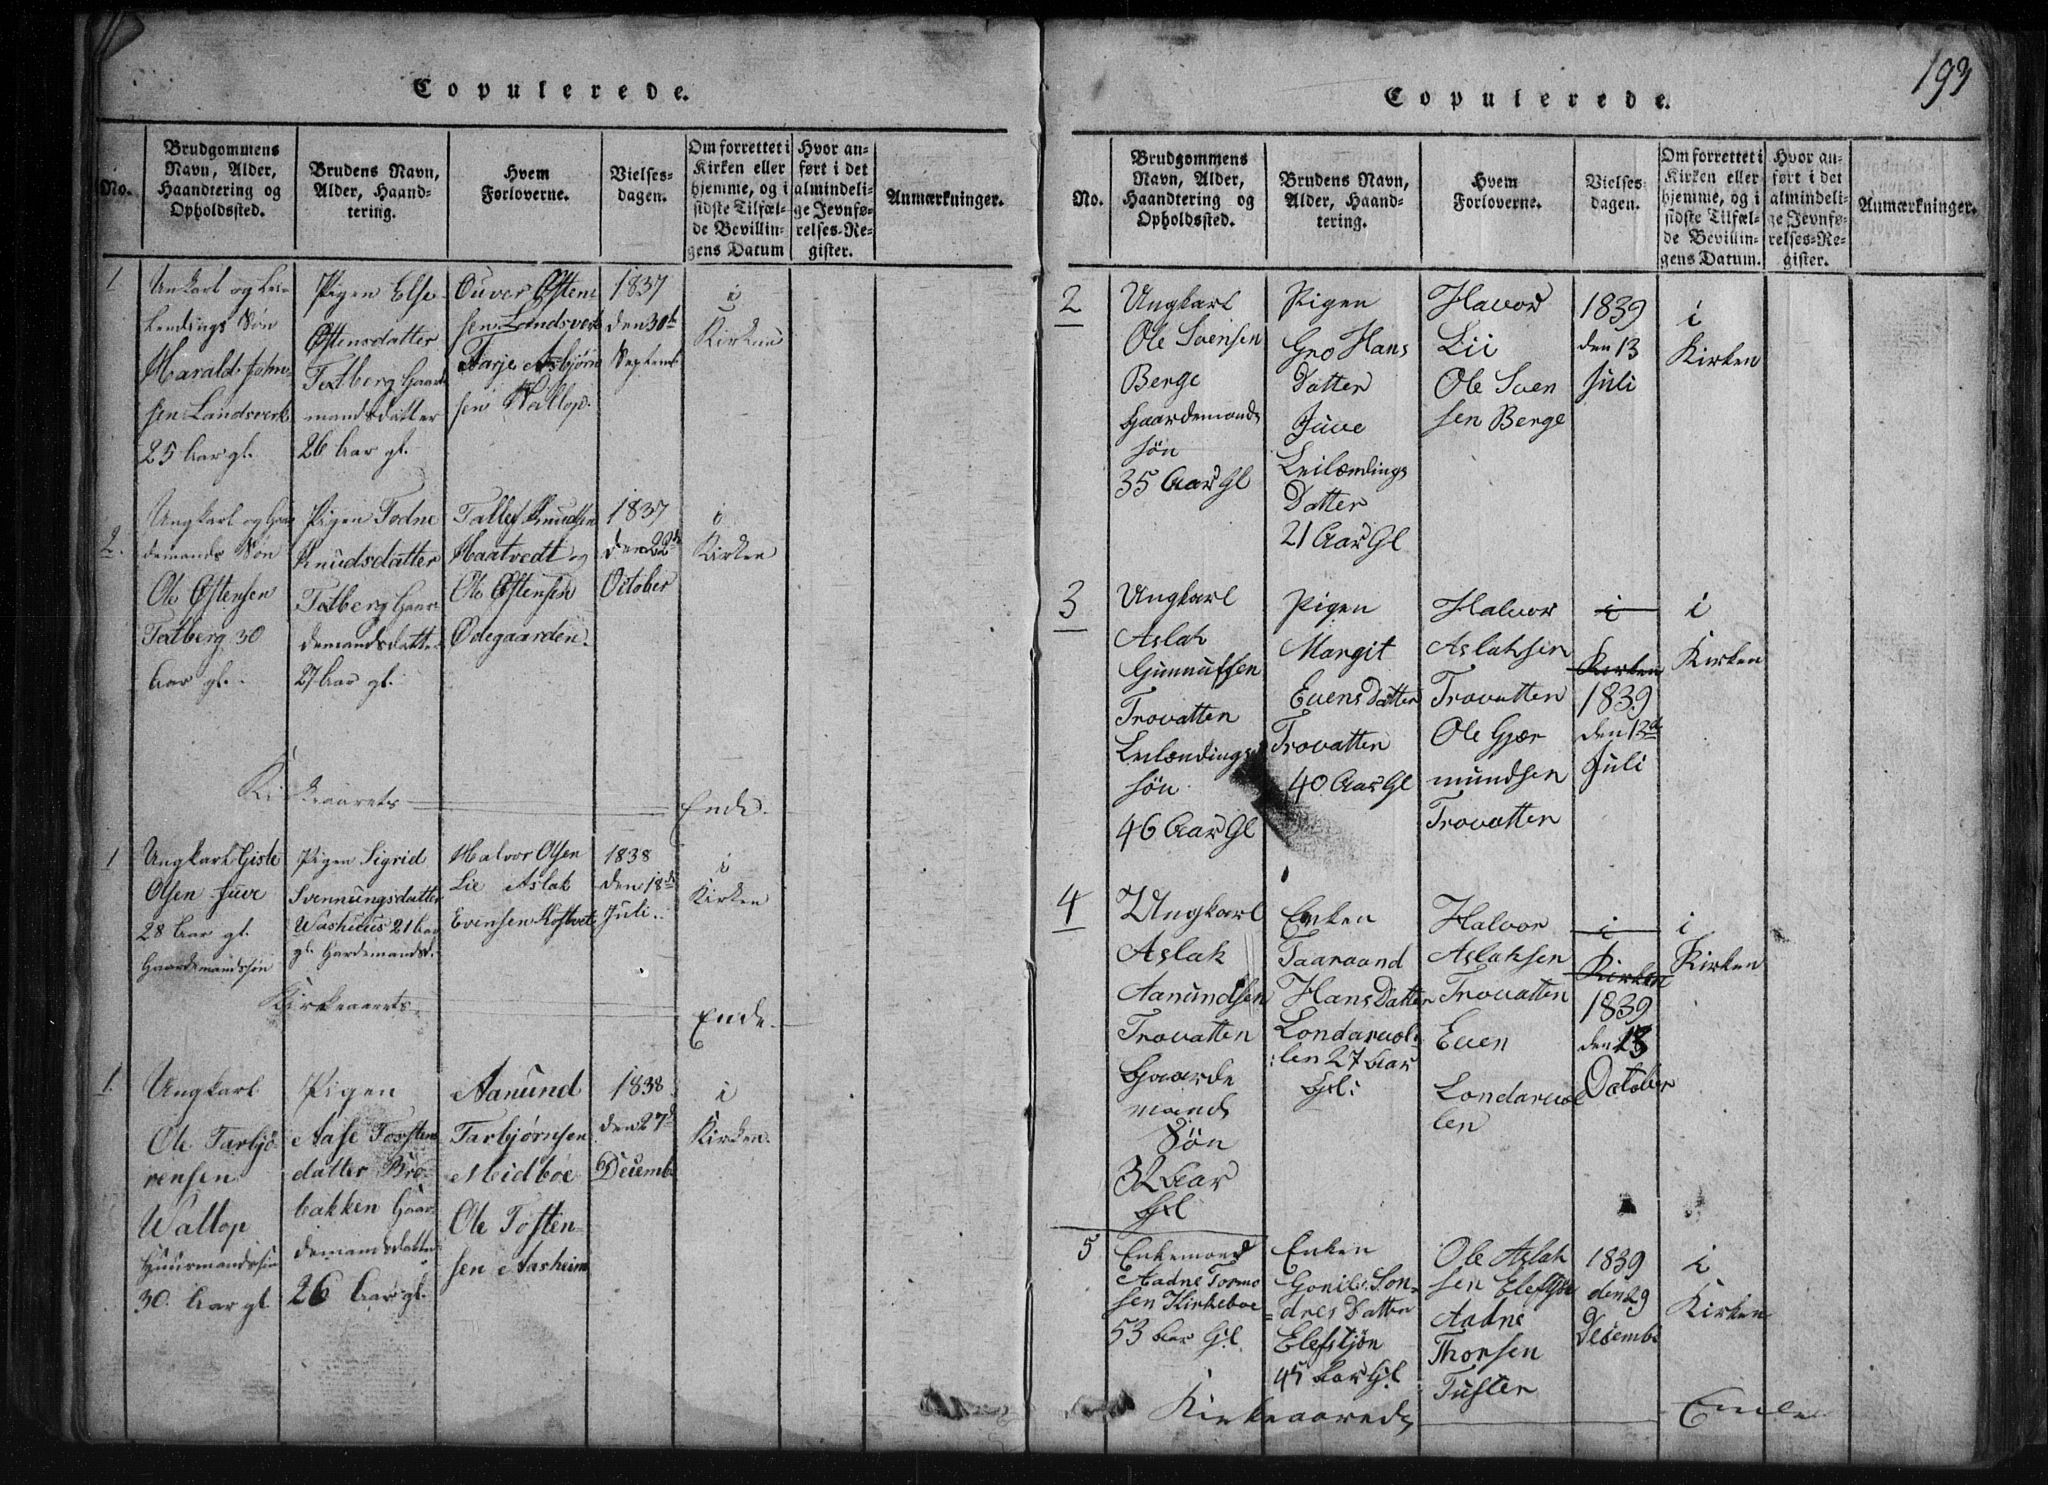 193
Copulerede.
No.
Brudgommens
Navn, Alder,
Haandtering og
Opholdssted.
Brudens Navn,
Alder, Haand-
tering.
Hvem
Forloverne.
Vielses-
dagen.
Om forrettet i
Kirken eller
hjemme, og i
sidste Tilfæl-
de Bevillin-
gens Datum
Hvor an-
ført i det
almindeli-
ge Jevnfø-
relses-Re-
gister.
Anmærkninger.
1
Unkarl og Lei-
lendings Søn
Harald John-
sen Landsverk
25 Aar gl.
Pigen Else
Østensdatter
Tatberg Gaard
mandsdatter
26 Aar gl.
Østen
sen Landsverk
Tarje Asbjørn
sen Wallop.
1837
den 30te
Septemb
i
Kirken
2.
Ungkarl og Gaar
demands Søn
Ole Østensen
Tatberg 30
Aar gl.
Pigen Todne
Knudsdatter
Tatberg Gaar
demandsdatter
27 Aar gl.
Tallef Knudsen
Haatvedt og
Ole Østensen
Ødegaarden.
1837
den 22de
October
i
Kirken
Kirkeaarets
Ende.
1
Ungkarl Gisle
Olsen Juve
28 Aar gl.
Gaardemandssøn
Pigen Sigrid
Svennungsdatter
21 Aar
gl. Gardemandsd.
Halvor Olsen
Lie Aslak
Evensen
1838
den 18de
Juli.
i
Kirken
Kirkeaarets
Ende.
1.
Ungkarl
Ole Tarbjø
rensen
Wallop
Huusmandssøn
30. Aar gl
Pigen
Aase Torsten
datter Bro-
bakken Gaar-
demandsdatter
26 Aar gl.
Aanund
Tarbjørnsen
Meidboe
Ole Tosten-
sen Aasheim
1838
den 27de
Decemb
i
Kirken.
Copulerede.
No.
Brudgommens
Navn, Alder,
Haandtering og
Opholdssted.
Brudens Navn,
Alder, Haand-
tering.
Hvem
Forloverne.
Vielses-
dagen.
Om forrettet i
Kirken eller
hjemme, og i
sidste Tilfæl-
de Bevillin-
gens Datum.
Hvor an-
ført i det
almindeli-
ge Jevnfø-
relses-Re-
gister.
Anmærkninger.
2
Ungkarl
Ole Svensen
Berge
Gaardemands
søn
35 Aar Gl
Pigen
Gro Hans
Datter
Juve
Leilændings
Datter
21 Aar Gl
Havor
Lii
Ole Sven
sen Berge
1839
den 13
Juli
i
Kirken
3
Ungkarl
Aslak
Gunnufsen
Trovatten
Leilændings
søn
46 Aar Gl
Pigen
Margit
Evens Datter
Trovatten
40 Aar Gl
Halvor
Aslaksen
Trovatten
Ole Gjer
mundsen
Trovatten
i
Kirken
1839
den 12te
Juli
i
Kirken
4
Ungkarl
Aslak
Aanundsen
Trovatten
Gaarde
mands
Søn
32 Aar
Gl
Enken
Taaraand
Hans Datter
Londarvol-
:len 27 Aar
Gl:
Halvor
Aslaksen
Trovatten
Even
Londarvol
len
i
Kirken
1839
den 13
October
i
Kirken
5
Enkemand
Aadne Tormo
sen Kirkeboe
53 Aar Gl.
Enken
Gonild Son-
=dres Datter
Elefstjøn
45 Aar Gl
Ole Aslak
sen Elefstjøn
Aadne
Thorsen
Tuften
1839
den 29
Decemb
i
Kirken
Kirkeaareds
Ende